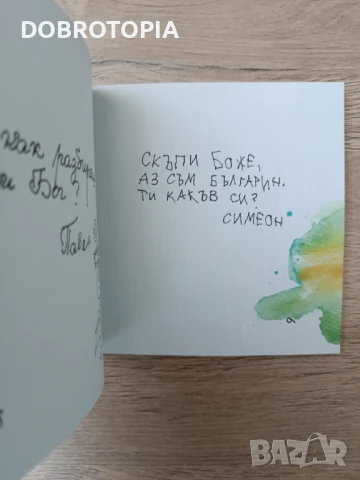 DOBROTOPIA
разбира
и Бог?
Павел
СКЪПИ БОЖЕ,
АЗ СЪМ БЪЛГАРИН.
ТИ КАКЪВ СИ?
СИМЕОН
9
BAZAR
bg